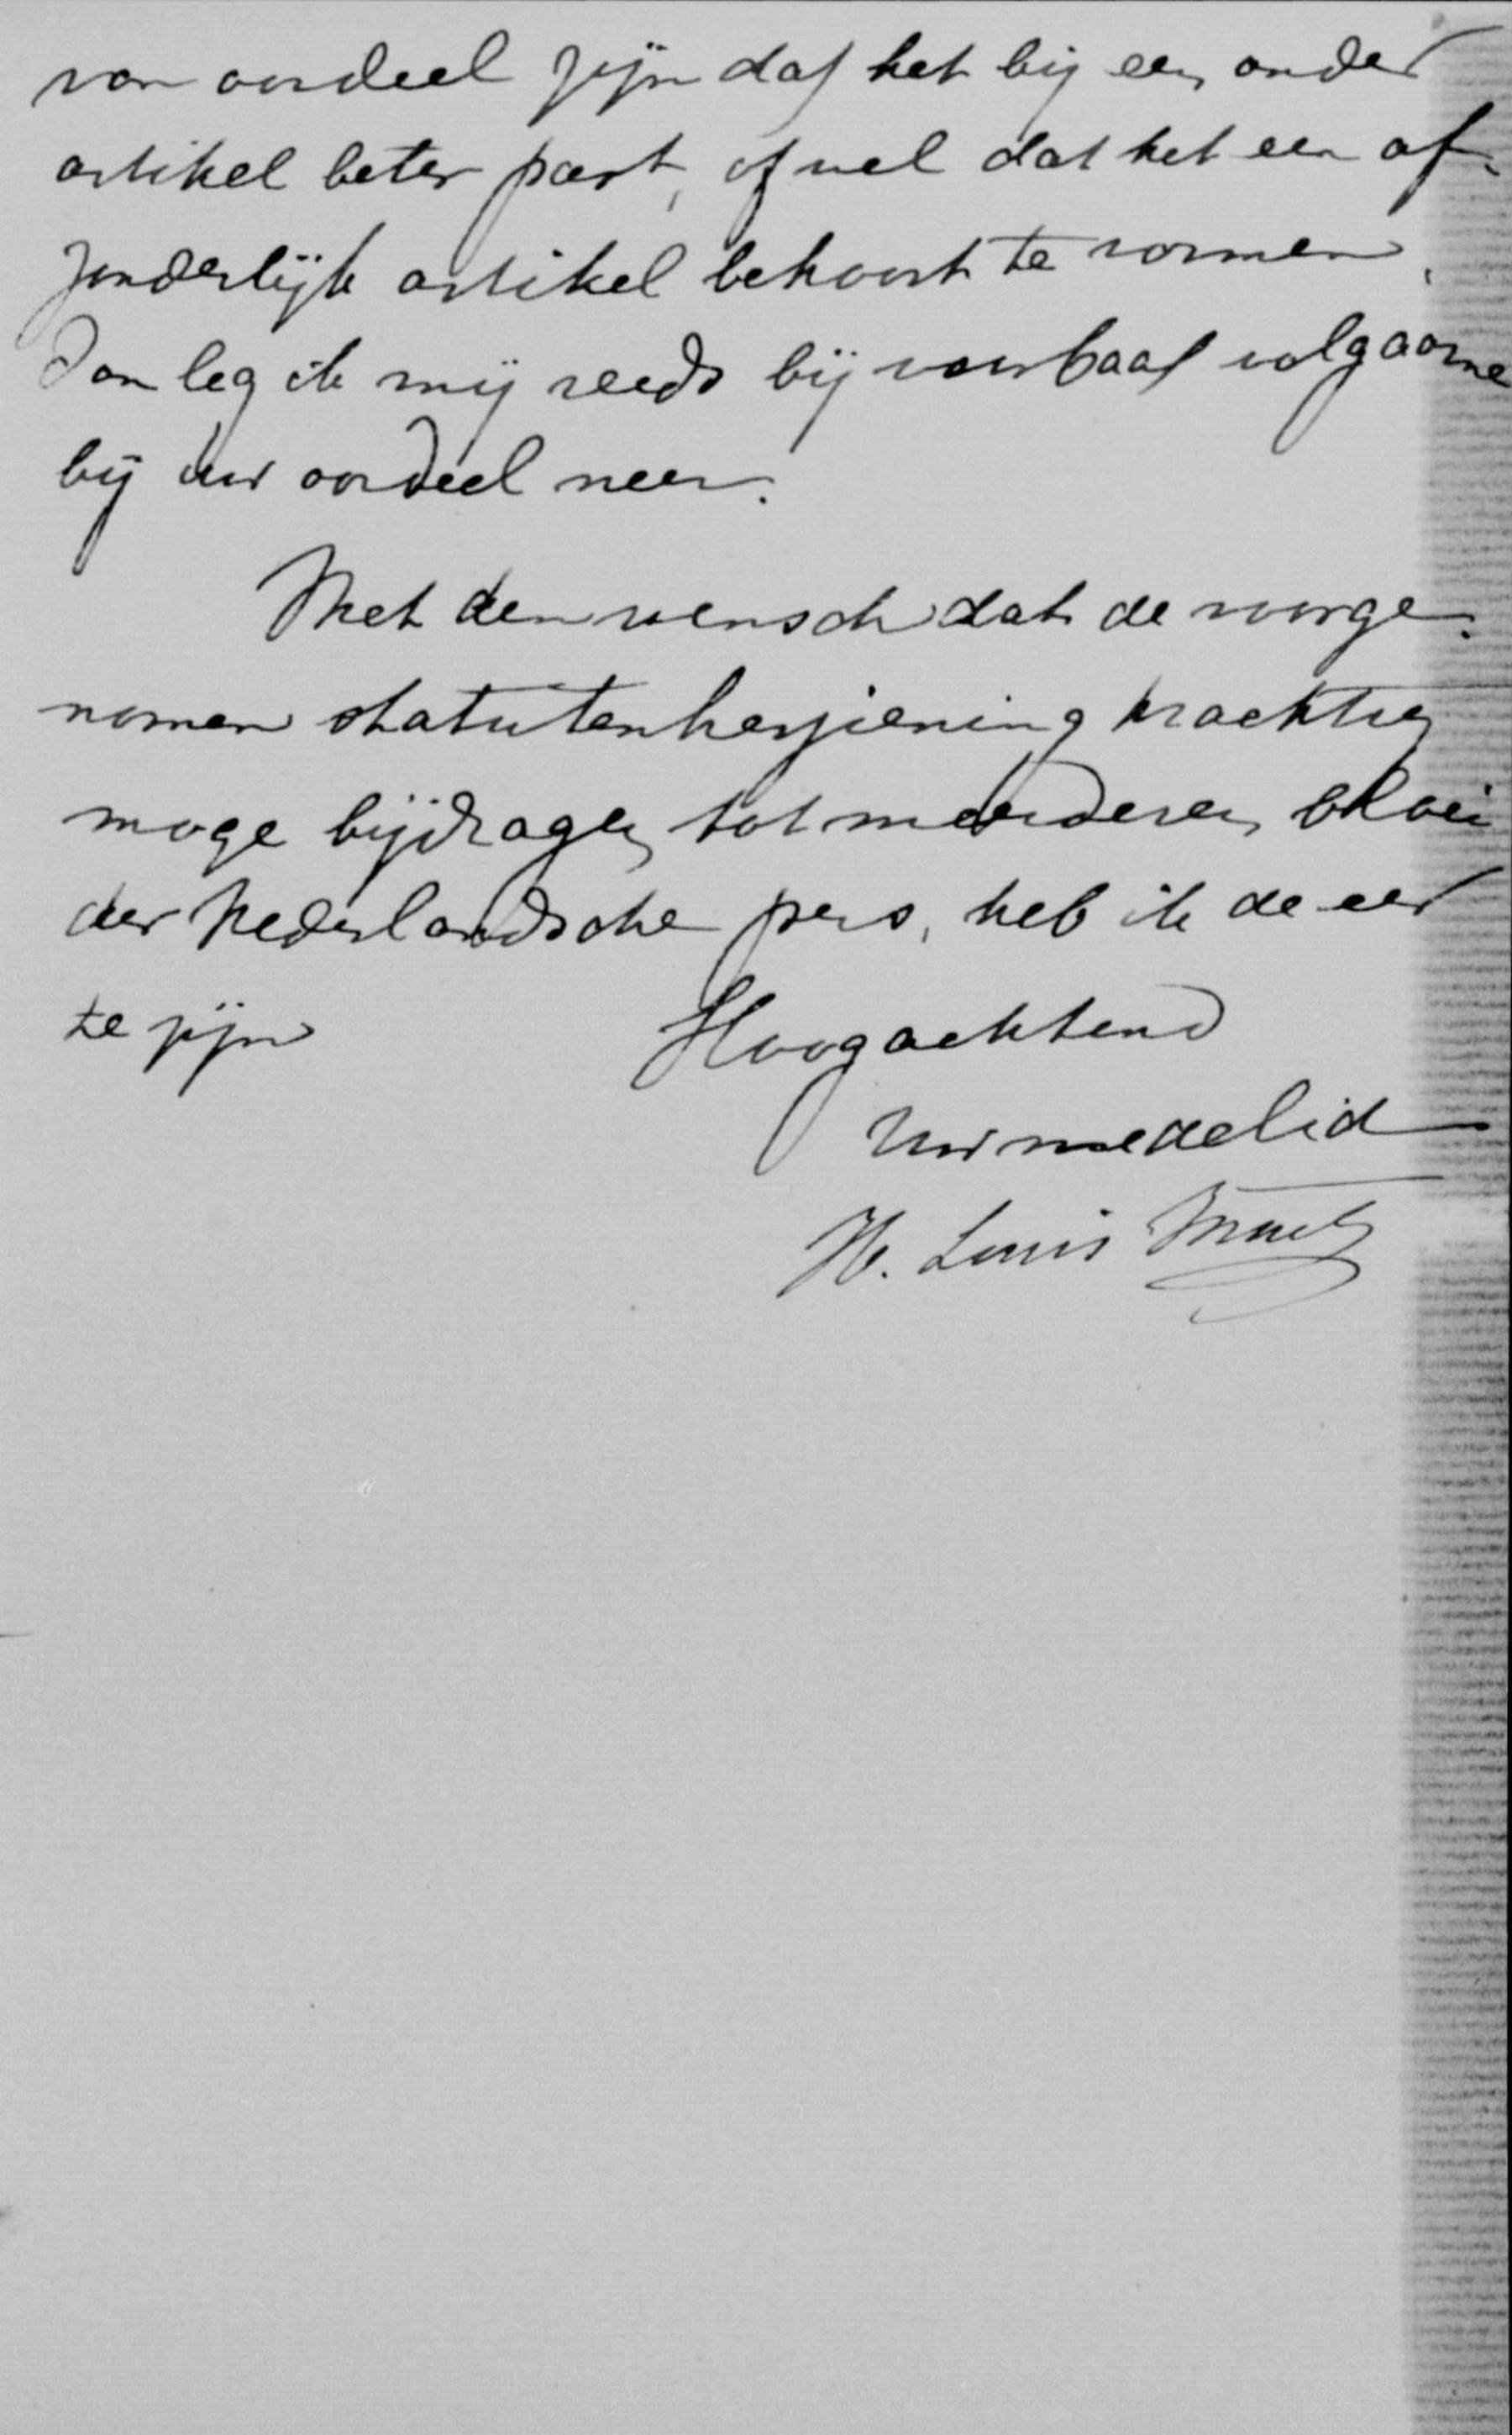 van oordeel zijn dat het bij een ander
artikel beter past, ofwel dat het een af-
zonderlijk artikel behoort te vormen,
Dan leg ik mij reeds bij voorbaat volgaarne
bij Uw oordeel neer.
Met den wensch dat de voorge-
nomen statutenherziening krachtig
moge bijdragen tot meerderen bloei
der Nederlandsche pers, heb ik de eer
te zijn Hoogachtend
Uw medelid
H. Louis